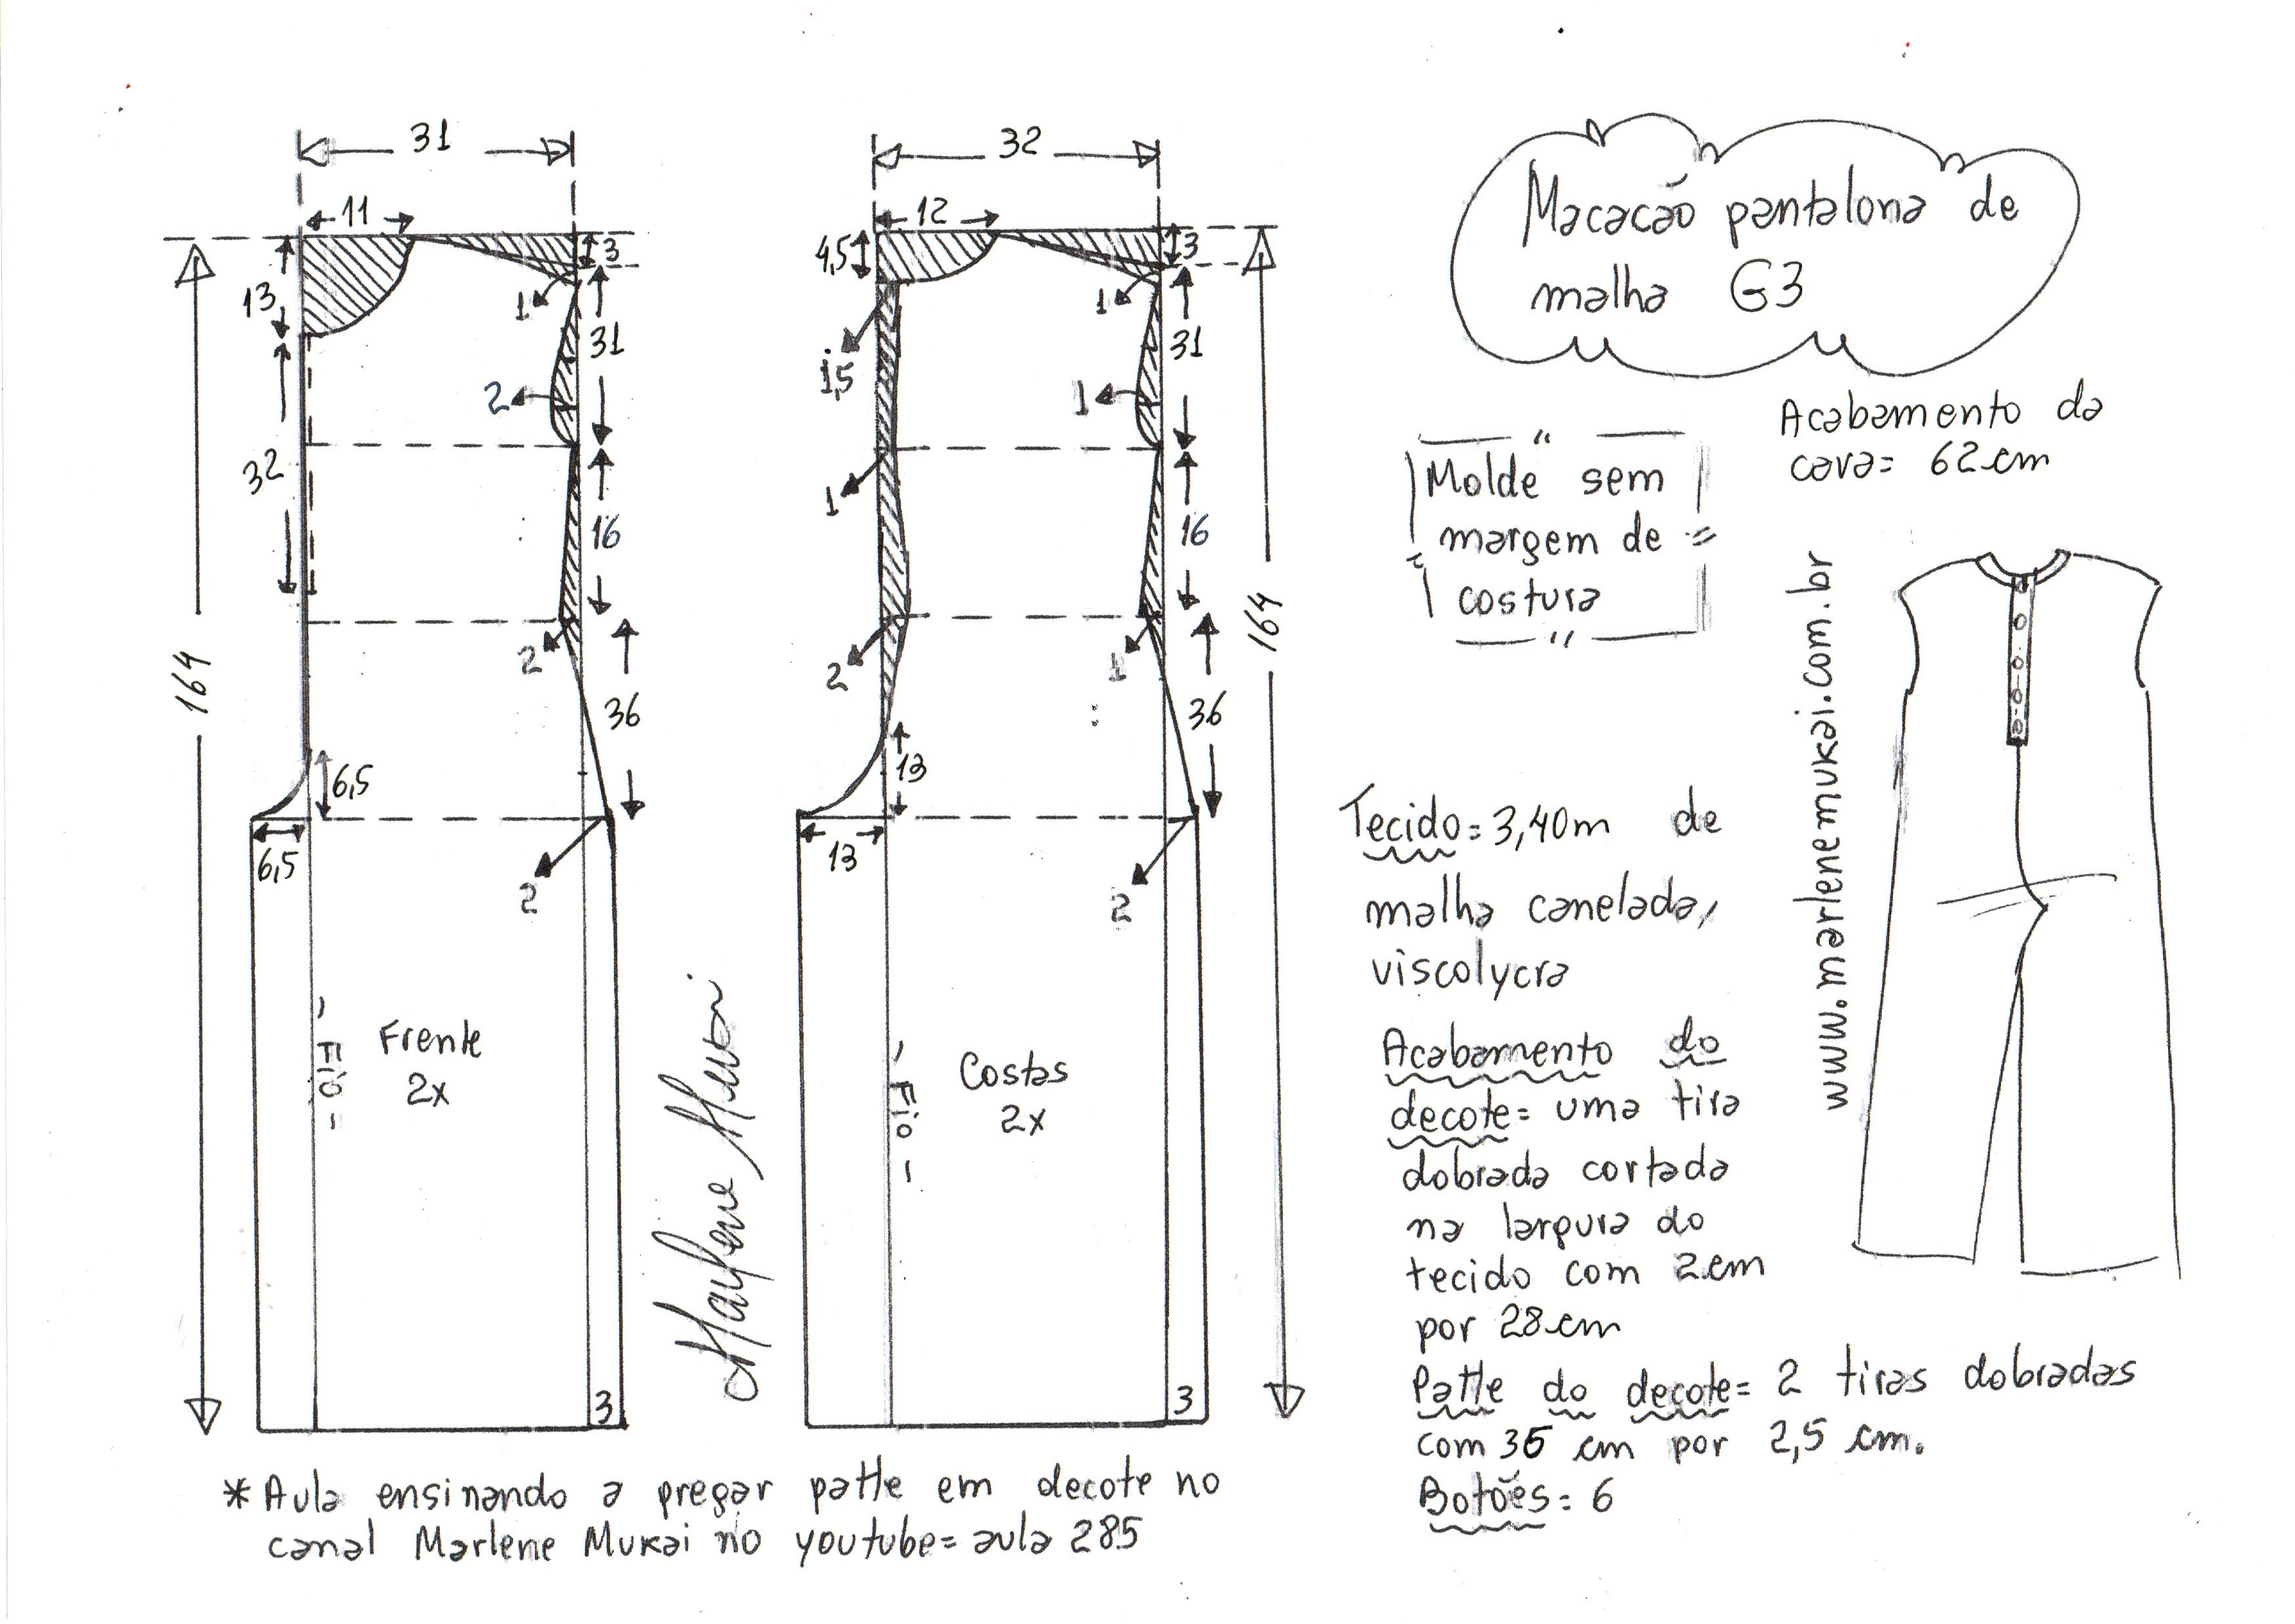 31
11
13
3
1
31
2
32
16
2
164
36
6,5
6,5
2
- Fio -
Frente
2x
3
32
12
4,5
3
1
31
1,5
1
1
16
2
1
164
36
13
13
2
- Fio -
Costas
2x
3
Marlene Mukai
* Aula ensinando a pregar patte em decote no
canal Marlene Mukai no youtube= aula 285
Macacão pantalona de
malha G3
Acabamento da
cava= 62cm
"Molde sem
margem de
costura"
www.marlenemukai.com.br
Tecido= 3,40m de
malha canelada,
viscolycra
Acabamento do
decote= uma tira
dobrada cortada
na largura do
tecido com 2cm
por 28cm
Patte do decote= 2 tiras dobradas
com 35 cm por 2,5 cm.
Botões= 6